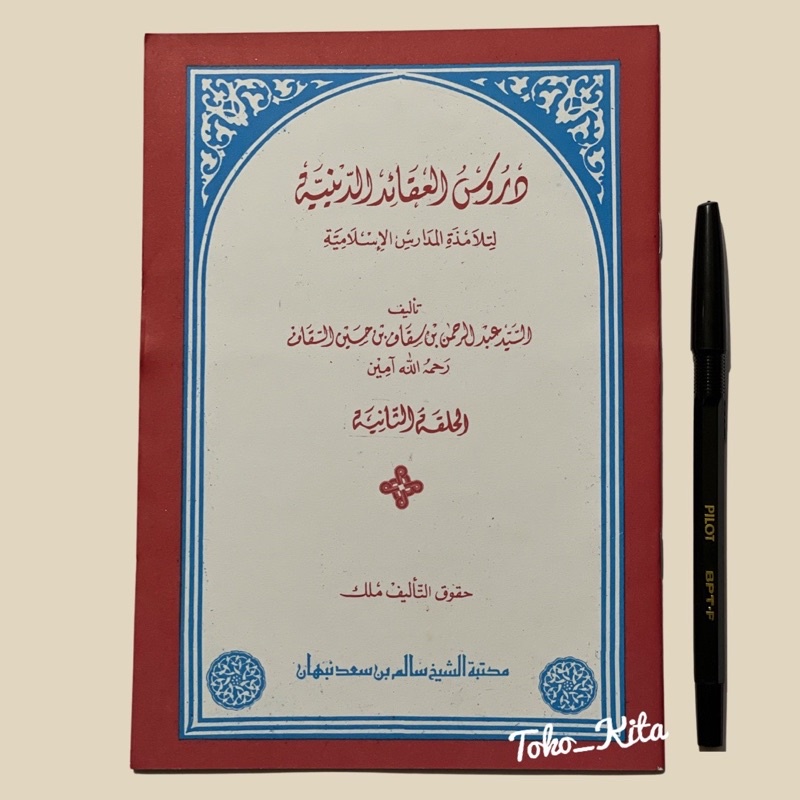 دُرُوسُ العَقَائِد الدِّينِيَّة
لِتَلاَمِذَةِ المَدَارِسِ الإِسْلاَمِيَّةِ
تأليف
السَّيِّد عَبْد الرحمن بن سقاف بن حسين السَّقاف
رَحِمَهُ الله آمِين
الحلقة الثَّانِيَة
حقوق التَّأليف مُلك
مكتبة الشيخ سالم بن سعد نبهان
PILOT BPT-F
Toko_Kita